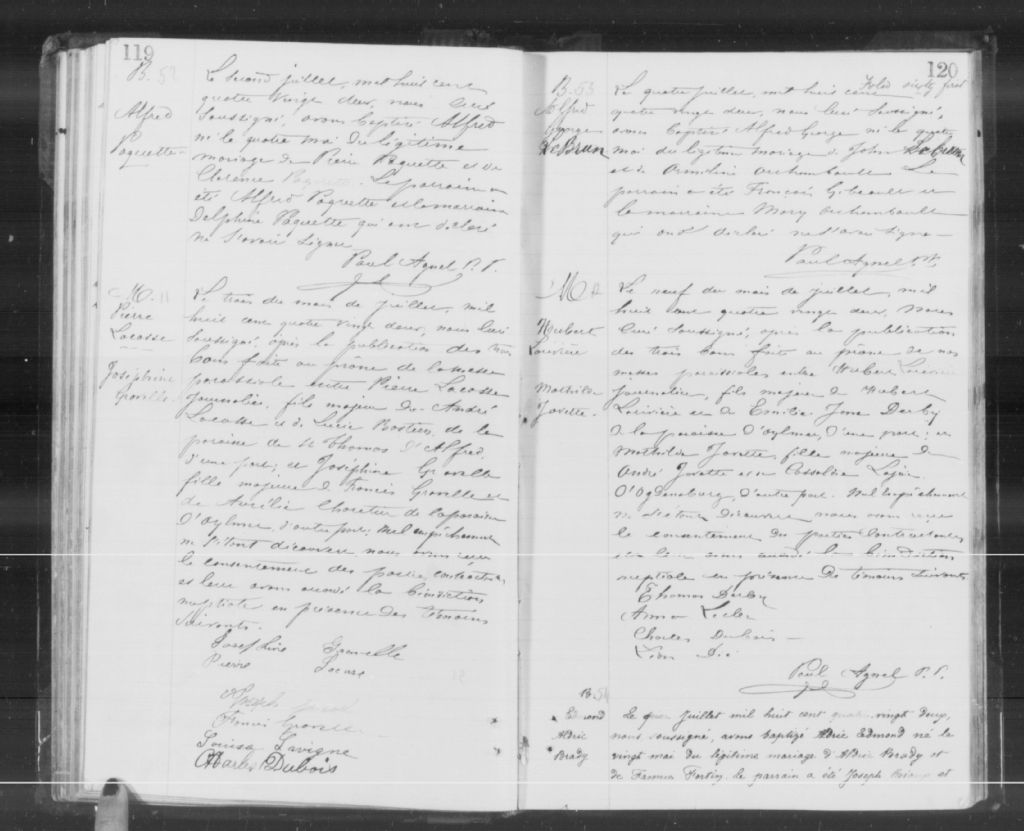 119
B. 52
Alfred
Paquette
Le second juillet, mil huit cent
quatre vingt deux, nous Curé
soussigné, avons baptisé Alfred
né le quatre mai du légitime
mariage de Pierre Paquette et de
Clarence Le parrain a
été Alfred Paquette et la marraine
Delphine Paquette qui ont déclaré
ne savoir signer
Paul Agnel P. P.
M. 11
Pierre
Lacasse
Joséphine
Gravelle
Le trois du mois de juillet, mil
huit cent quatre vingt deux, nous Curé
soussigné, après la publication des trois
bans faite au prône de la messe
paroissiale entre Pierre Lacasse
journalier, fils majeur de André
Lacasse et de Lucie de la
paroisse de St Thomas d'Alfred,
d'une part; et Joséphine Gravelle
fille majeure de Francis Gravelle et
de Aurélie de la paroisse
d'Aylmer, d'autre part; Nul empêchement
ne s'étant découvert nous avons reçu
le consentement des parties contractantes
et leur avons donné la bénédiction
nuptiale en présence des témoins
suivants.
Josephine Gravelle
Pierre Lacasse
Joseph
Francis Gravelle
Louisa Lavigne
Charles Dubois
120
Folio sixty first
B. 53
Alfred
George
LeBrun
Le quatre juillet, mil huit cent
quatre vingt deux, nous Curé soussigné,
avons baptisé Alfred George né le quatre
mai du légitime mariage de John LeBrun
et de Archambault Le
parrain a été François et
la marraine Mary Archambault
qui ont déclaré ne savoir signer
Paul Agnel P. P.
M
Hubert
Larivière
Mathilde
Le neuf du mois de juillet, mil
huit cent quatre vingt deux, Nous
Curé soussigné, après la publication
des trois bans faite au prône de nos
messes paroissiales entre Hubert Larivière
journalier, fils majeur de Hubert
Larivière et de Emilie Jane Derby
de la paroisse d'Aylmer, d'une part; et
Mathilde fille majeure de
André et de
d'Ogdensburg, d'autre part. Nul empêchement
ne s'étant découvert nous avons reçu
le consentement des parties contractantes
et leur avons donné la bénédiction
nuptiale en présence des témoins suivants
Thomas Derby
Anna
Charles Dubois
Léon
Paul Agnel P. P.
B. 54
Edmond
Aldric
Brady
Le Juillet mil huit cent quatre vingt deux,
nous soussigné, avons baptisé Aldric Edmond né le
vingt mai du légitime mariage d'Aldric Brady et
de Fortin, le parrain a été Joseph et